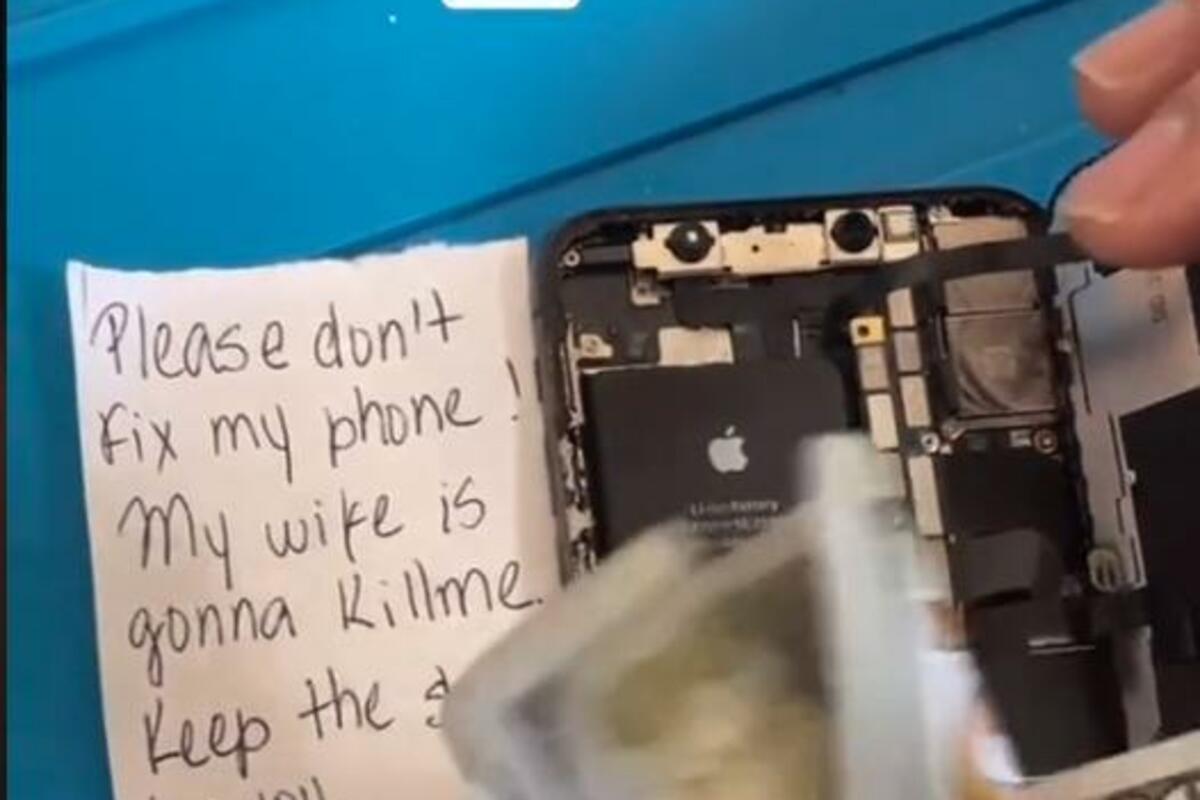 Please don't
fix my phone!
My wife is
gonna Killme.
Keep the
Li-ion Battery